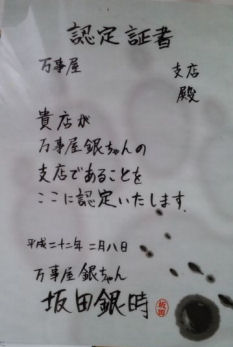 認定証書
万事屋 支店
殿
貴店が
万事屋銀ちゃんの
支店であることを
ここに認定いたします.
平成二十二年 二月八日
万事屋銀ちゃん
坂田銀時
坂田